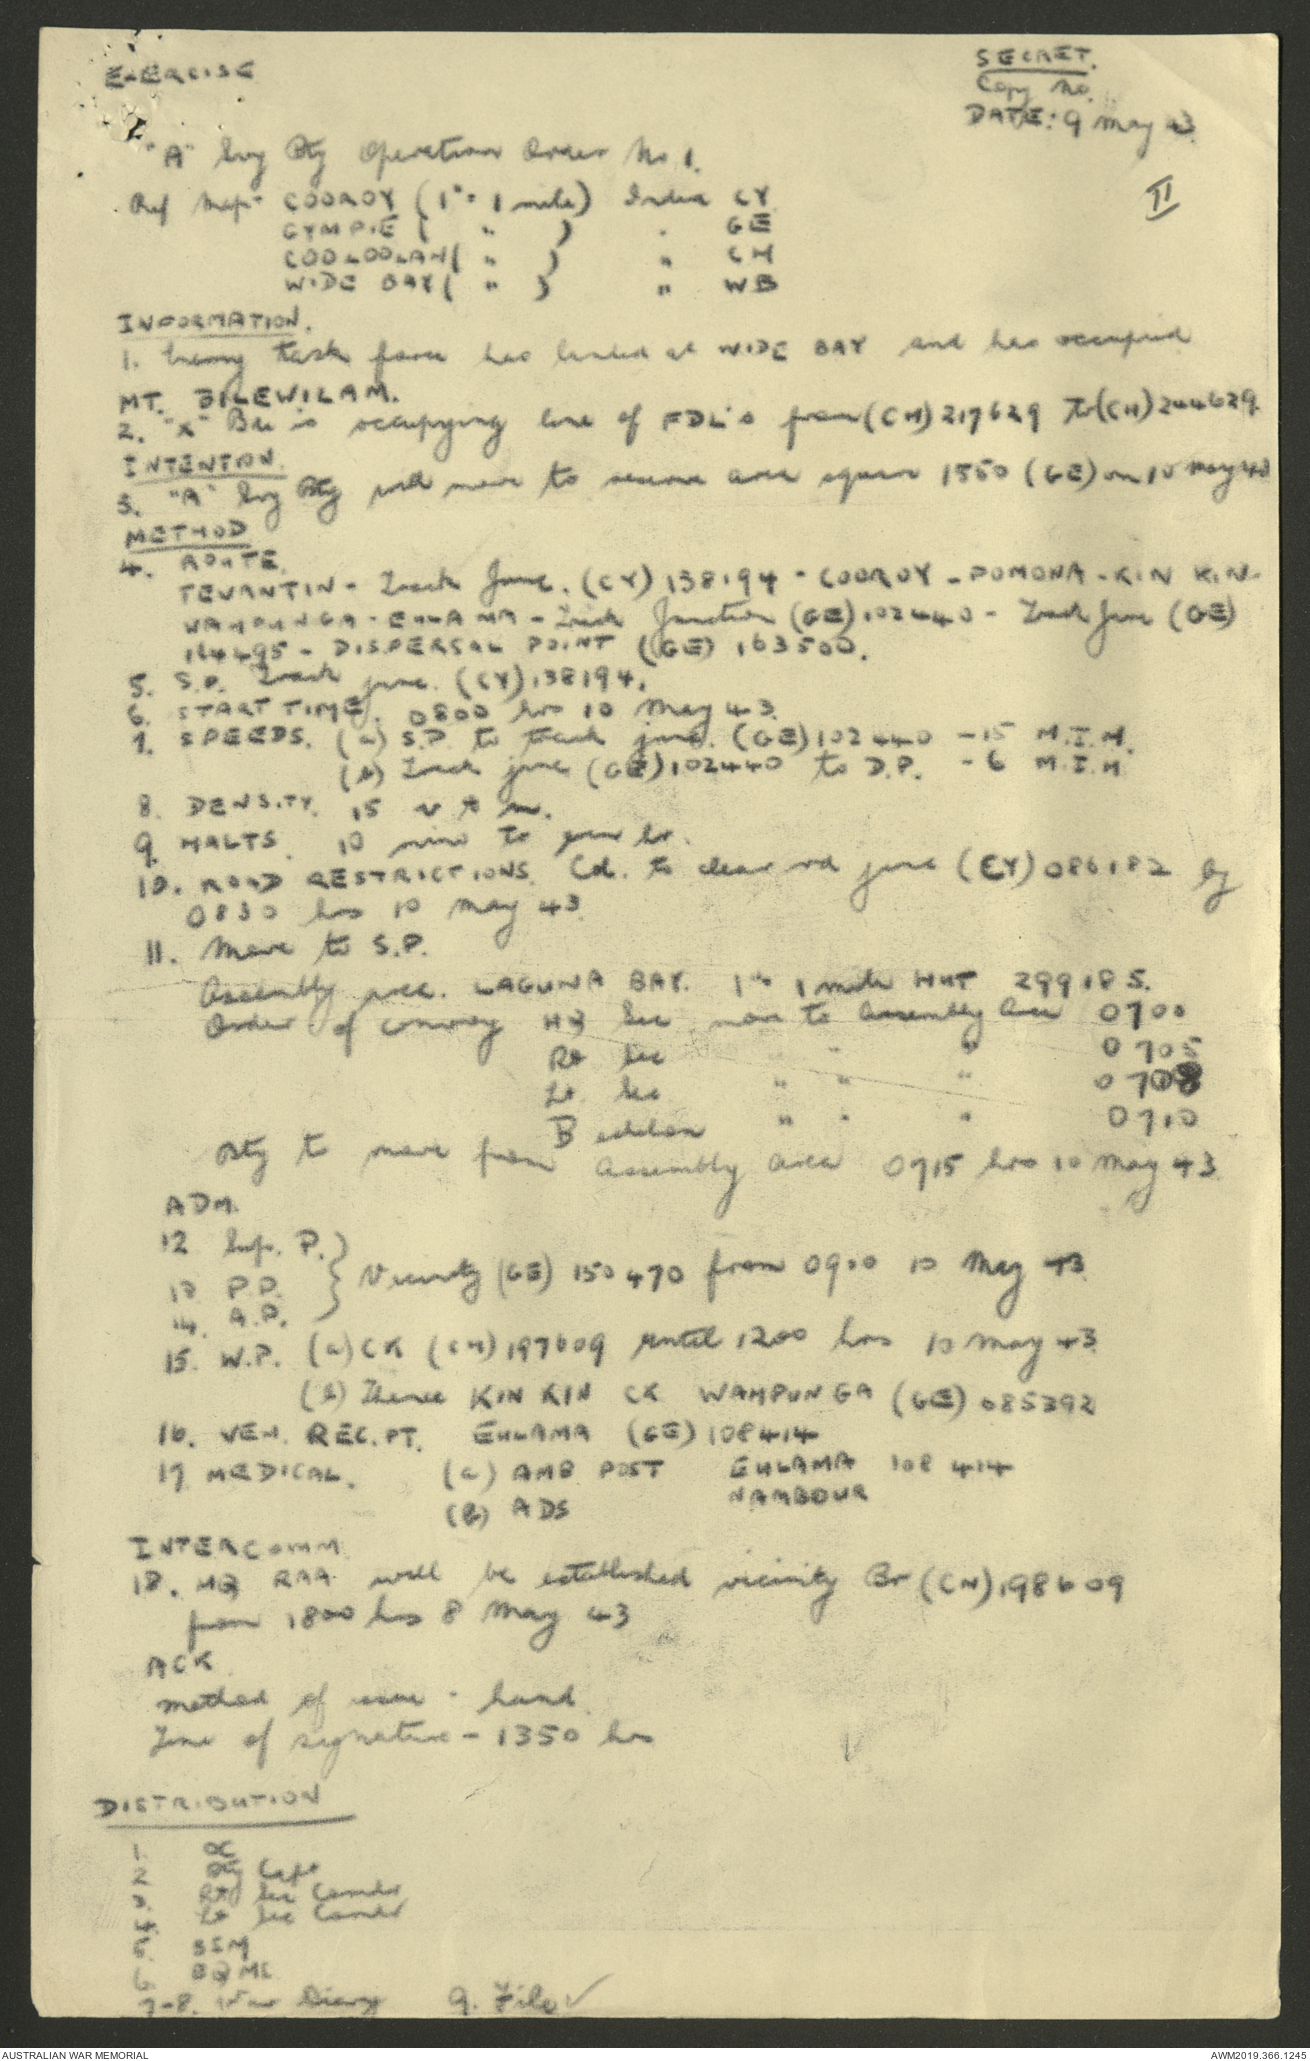 EXERCISE
SECRET.
Copy No.
DATE: 9 May 43
"A" Svy Bty Operation Order No 1.
II
Ref Map - COOROY (1" = 1 mile) Index CY
GYMPIE ( " ) " GE
COOLOOLAH ( " ) " CH
WIDE BAY ( " ) " WB
INFORMATION.
1. Enemy task force has landed at WIDE BAY and has occupied
MT. BILEWILAM.
2. "X" Bde is occupying line of FDL's from (CH) 217629 to (CH) 244629.
INTENTION.
3. "A" Svy Bty will move to survey area square 1550 (GE) on 10 May 43
METHOD
4. ROUTE.
TEWANTIN - Track Junc. (CY) 138194 - COOROY - POMONA - KIN KIN -
WAHPUNGA - EULAMA - Track Junction (GE) 102440 - Track Junc (GE)
164495 - DISPERSAL POINT (GE) 163500.
5. S.P. Track junc. (CY) 138194.
6. START TIME. 0800 hrs 10 May 43.
7. SPEEDS. (a) S.P. to track junc. (GE) 102440 - 15 M.I.H.
(b) Track junc (GE) 102440 to D.P. - 6 M.I.H.
8. DENSITY. 15 v t m.
9. HALTS. 10 mins to every hr.
10. ROAD RESTRICTIONS. Col. to clear rd junc (CY) 086182 by
0830 hrs 10 May 43.
11. Move to S.P.
Assembly area. LAGUNA BAY. 1" = 1 mile HUT 299185.
Order of convoy HQ Sec move to Assembly Area 0700
Rt Sec " " " 0705
Lt Sec " " " 0708
B echelon " " " 0710
Bty to move from Assembly area 0715 hrs 10 May 43.
ADM.
12 Sup. P. }
13 P.P. } Vicinity (GE) 150470 from 0900 10 May 43
14. A.P. }
15. W.P. (a) CK (CH) 197609 until 1200 hrs 10 May 43
(b) Thence KIN KIN CK WAHPUNGA (GE) 085392
16. VEH. REC. PT. EULAMA (GE) 108414
17 MEDICAL. (a) AMB POST EULAMA 108414
(b) ADS NAMBOUR
INTERCOMM
18. HQ RAA will be established vicinity Br (CH) 198609
from 1800 hrs 8 May 43
ACK
Method of issue - hand.
Time of signature - 1350 hrs
DISTRIBUTION
1 OC
2 Bty Capt
3. Rt Sec Comdr
4. Lt Sec Comdr
5. BSM
6 BQMS
7-8. War Diary 9. File ✓
AUSTRALIAN WAR MEMORIAL
AWM2019.366.1245